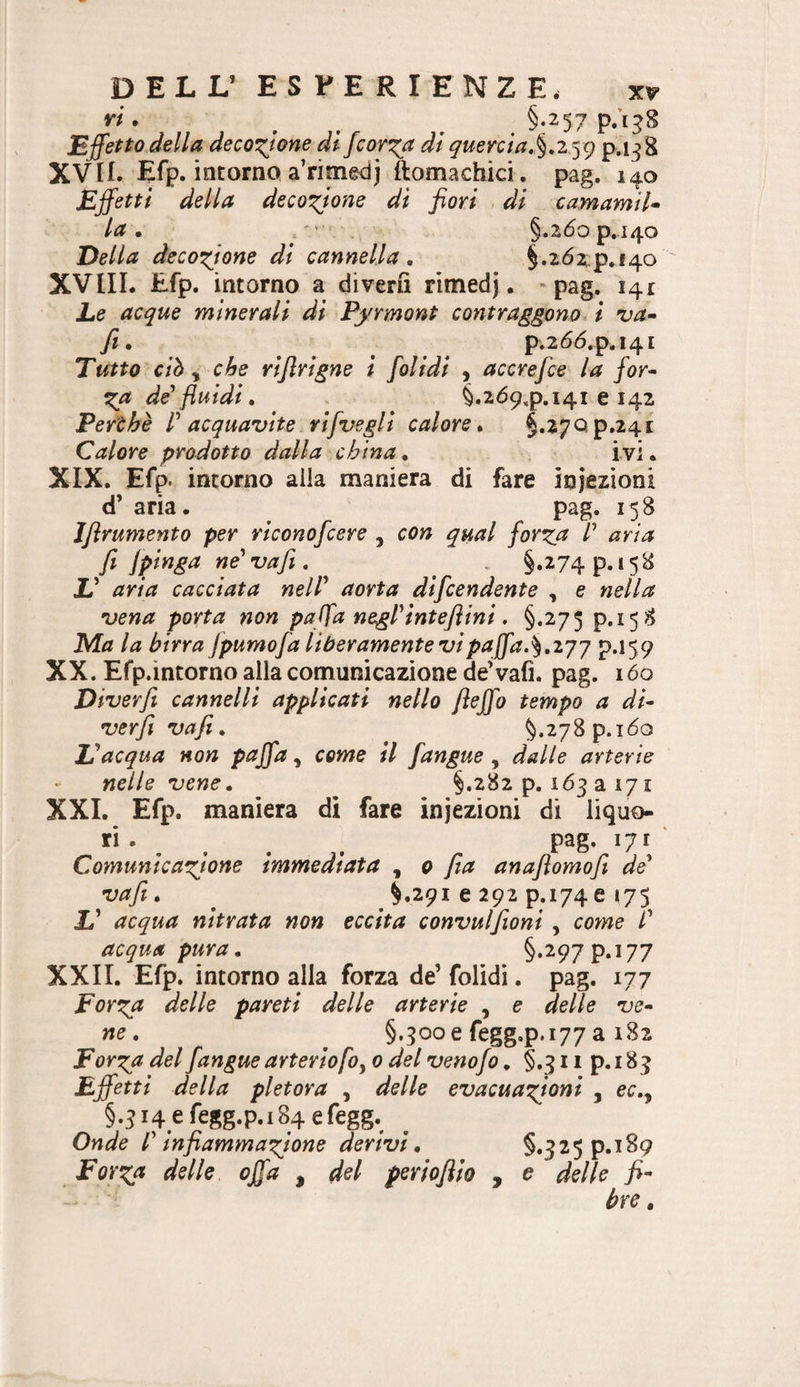 DELL' ESPERIENZE. xv
ri. §.257 p.138
Effetto della decozione di ſcorza di quercia.§.259 p.138
XVII. Eſp. intorno a'rimedj ſtomachici. pag. 140
Effetti della decozione di fiori di camamil-
la. §.260 p.140
Della decozione di cannella. §.262 p.140
XVIII. Eſp. intorno a diverſi rimedj. pag. 141
Le acque minerali di Pyrmont contraggono i va-
ſi. p.266.p.141
Tutto ciò, che riſtrigne i ſolidi, accreſce la for-
za de' fluidi. §.269.p.141 e 142
Perchè l'acquavite riſvegli calore. §.270 p.241
Calore prodotto dalla china. ivi.
XIX. Eſp. intorno alla maniera di fare injezioni
d'aria. pag. 158
Iſtrumento per riconoſcere, con qual forza l'aria
ſi ſpinga ne' vaſi. §.274 p.158
L'aria cacciata nell'aorta diſcendente, e nella
vena porta non paſſa negl'inteſtini. §.275 p.158
Ma la birra ſpumoſa liberamente vi paſſa.§.277 p.159
XX. Eſp.intorno alla comunicazione de'vaſi. pag. 160
Diverſi cannelli applicati nello ſteſſo tempo a di-
verſi vaſi. §.278 p.160
L'acqua non paſſa, come il ſangue, dalle arterie
nelle vene. §.282 p. 163 a 171
XXI. Eſp. maniera di fare injezioni di liquo-
ri. pag. 171
Comunicazione immediata, o ſia anaſtomoſi de'
vaſi. §.291 e 292 p.174 e 175
L'acqua nitrata non eccita convulſioni, come l'
acqua pura. §.297 p.177
XXII. Eſp. intorno alla forza de' ſolidi. pag. 177
Forza delle pareti delle arterie, e delle ve-
ne. §.300 e ſegg.p.177 a 182
Forza del ſangue arterioſo, o del venoſo. §.311 p.183
Effetti della pletora, delle evacuazioni, ec.,
§.314 e ſegg.p.184 e ſegg.
Onde l'infiammazione derivi. §.325 p.189
Forza delle oſſa, del perioſtio, e delle fi-
bre.